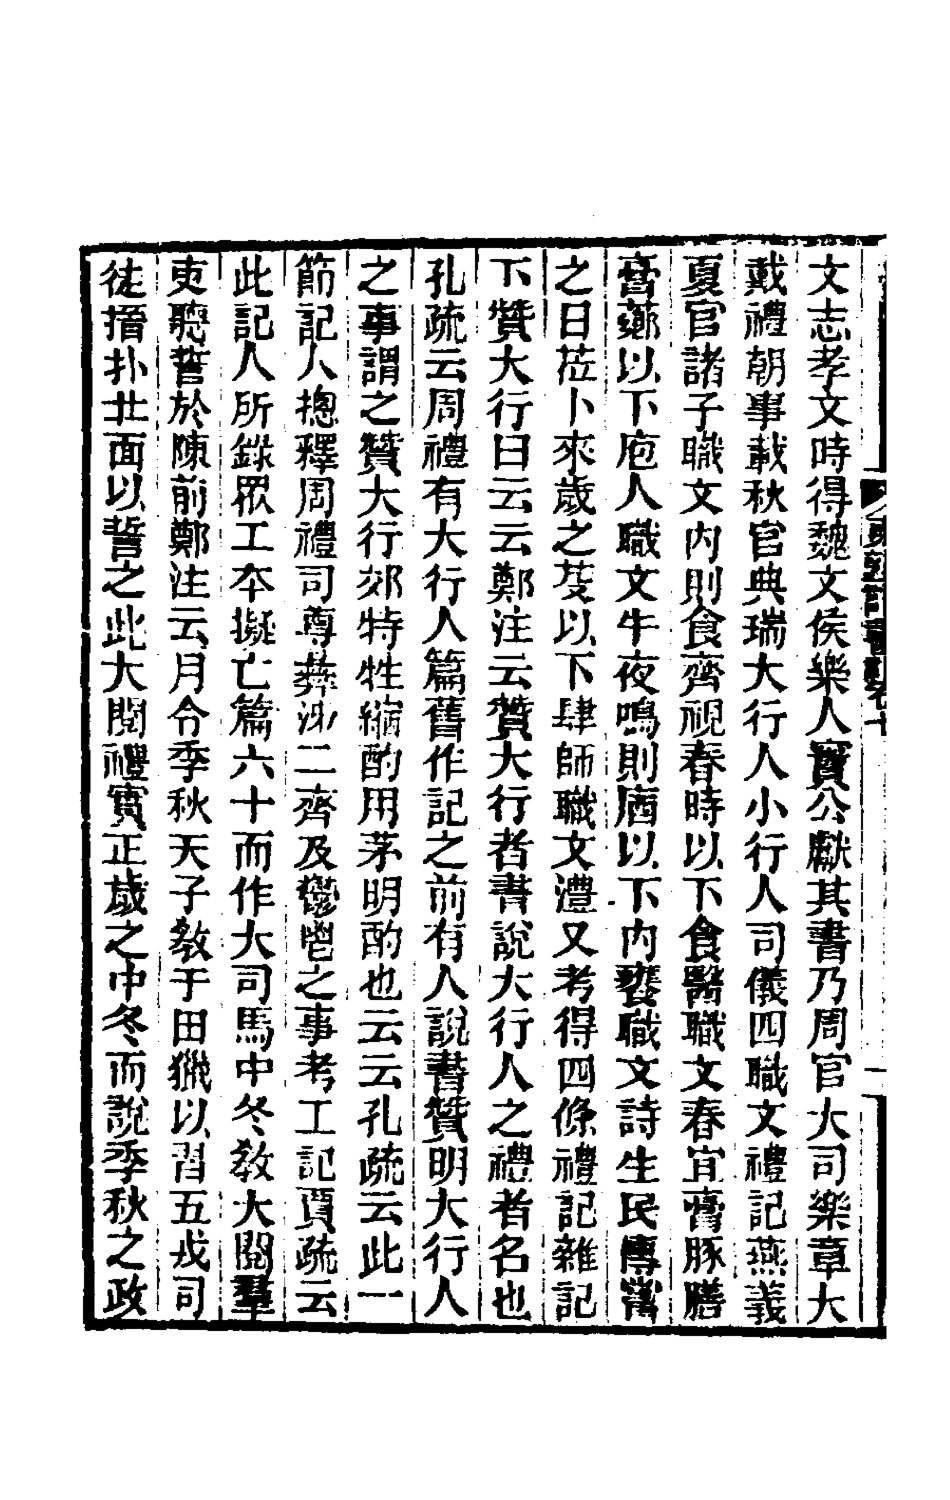 文志孝文時得魏文侯樂人竇公獻其書乃周官大司樂章大
戴禮朝事載秋官典瑞大行人小行人司儀四職文禮記燕義
夏官諸子職文內則食齊視春時以下食醫職文春宜膏豚膳
膏薌以下庖人職文牛夜鳴則庮以下內饔職文詩生民傳嘗
之日莅卜來歲之芟以下肆師職文澧又考得四條禮記雜記
下贊大行曰云云鄭注云贊大行者書說大行人之禮者名也
孔疏云周禮有大行人篇舊作記之前有人說書贊明大行人
之事謂之贊大行郊特牲縮酌用茅明酌也云云孔疏云此一
節記人摠釋周禮司尊彝沛二齊及鬱鬯之事考工記賈疏云
此記人所錄眾工本擬亡篇六十而作大司馬中冬敎大閱羣
吏聽誓於陳前鄭注云月令季秋天子敎于田獵以習五戎司
徒搢扑北面以誓之此大閱禮實正歲之中冬而說季秋之政